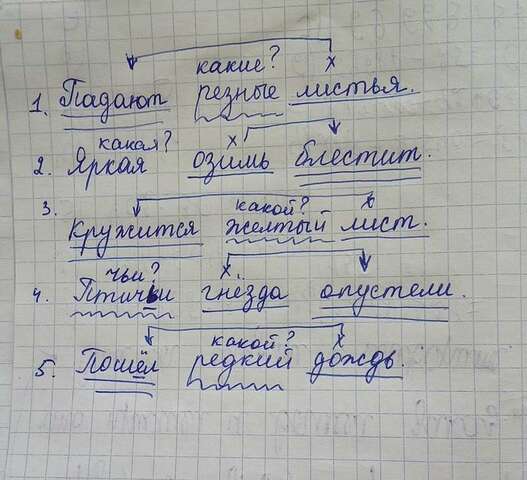 какие?
х
1. Падают резные листья.
какая?
х
2. Яркая озимь блестит.
3.
какой?
х
Кружится желтый лист.
чьи?
х
4. Птичьи гнёзда опустели.
какой?
х
5. Пошёл редкий дождь.